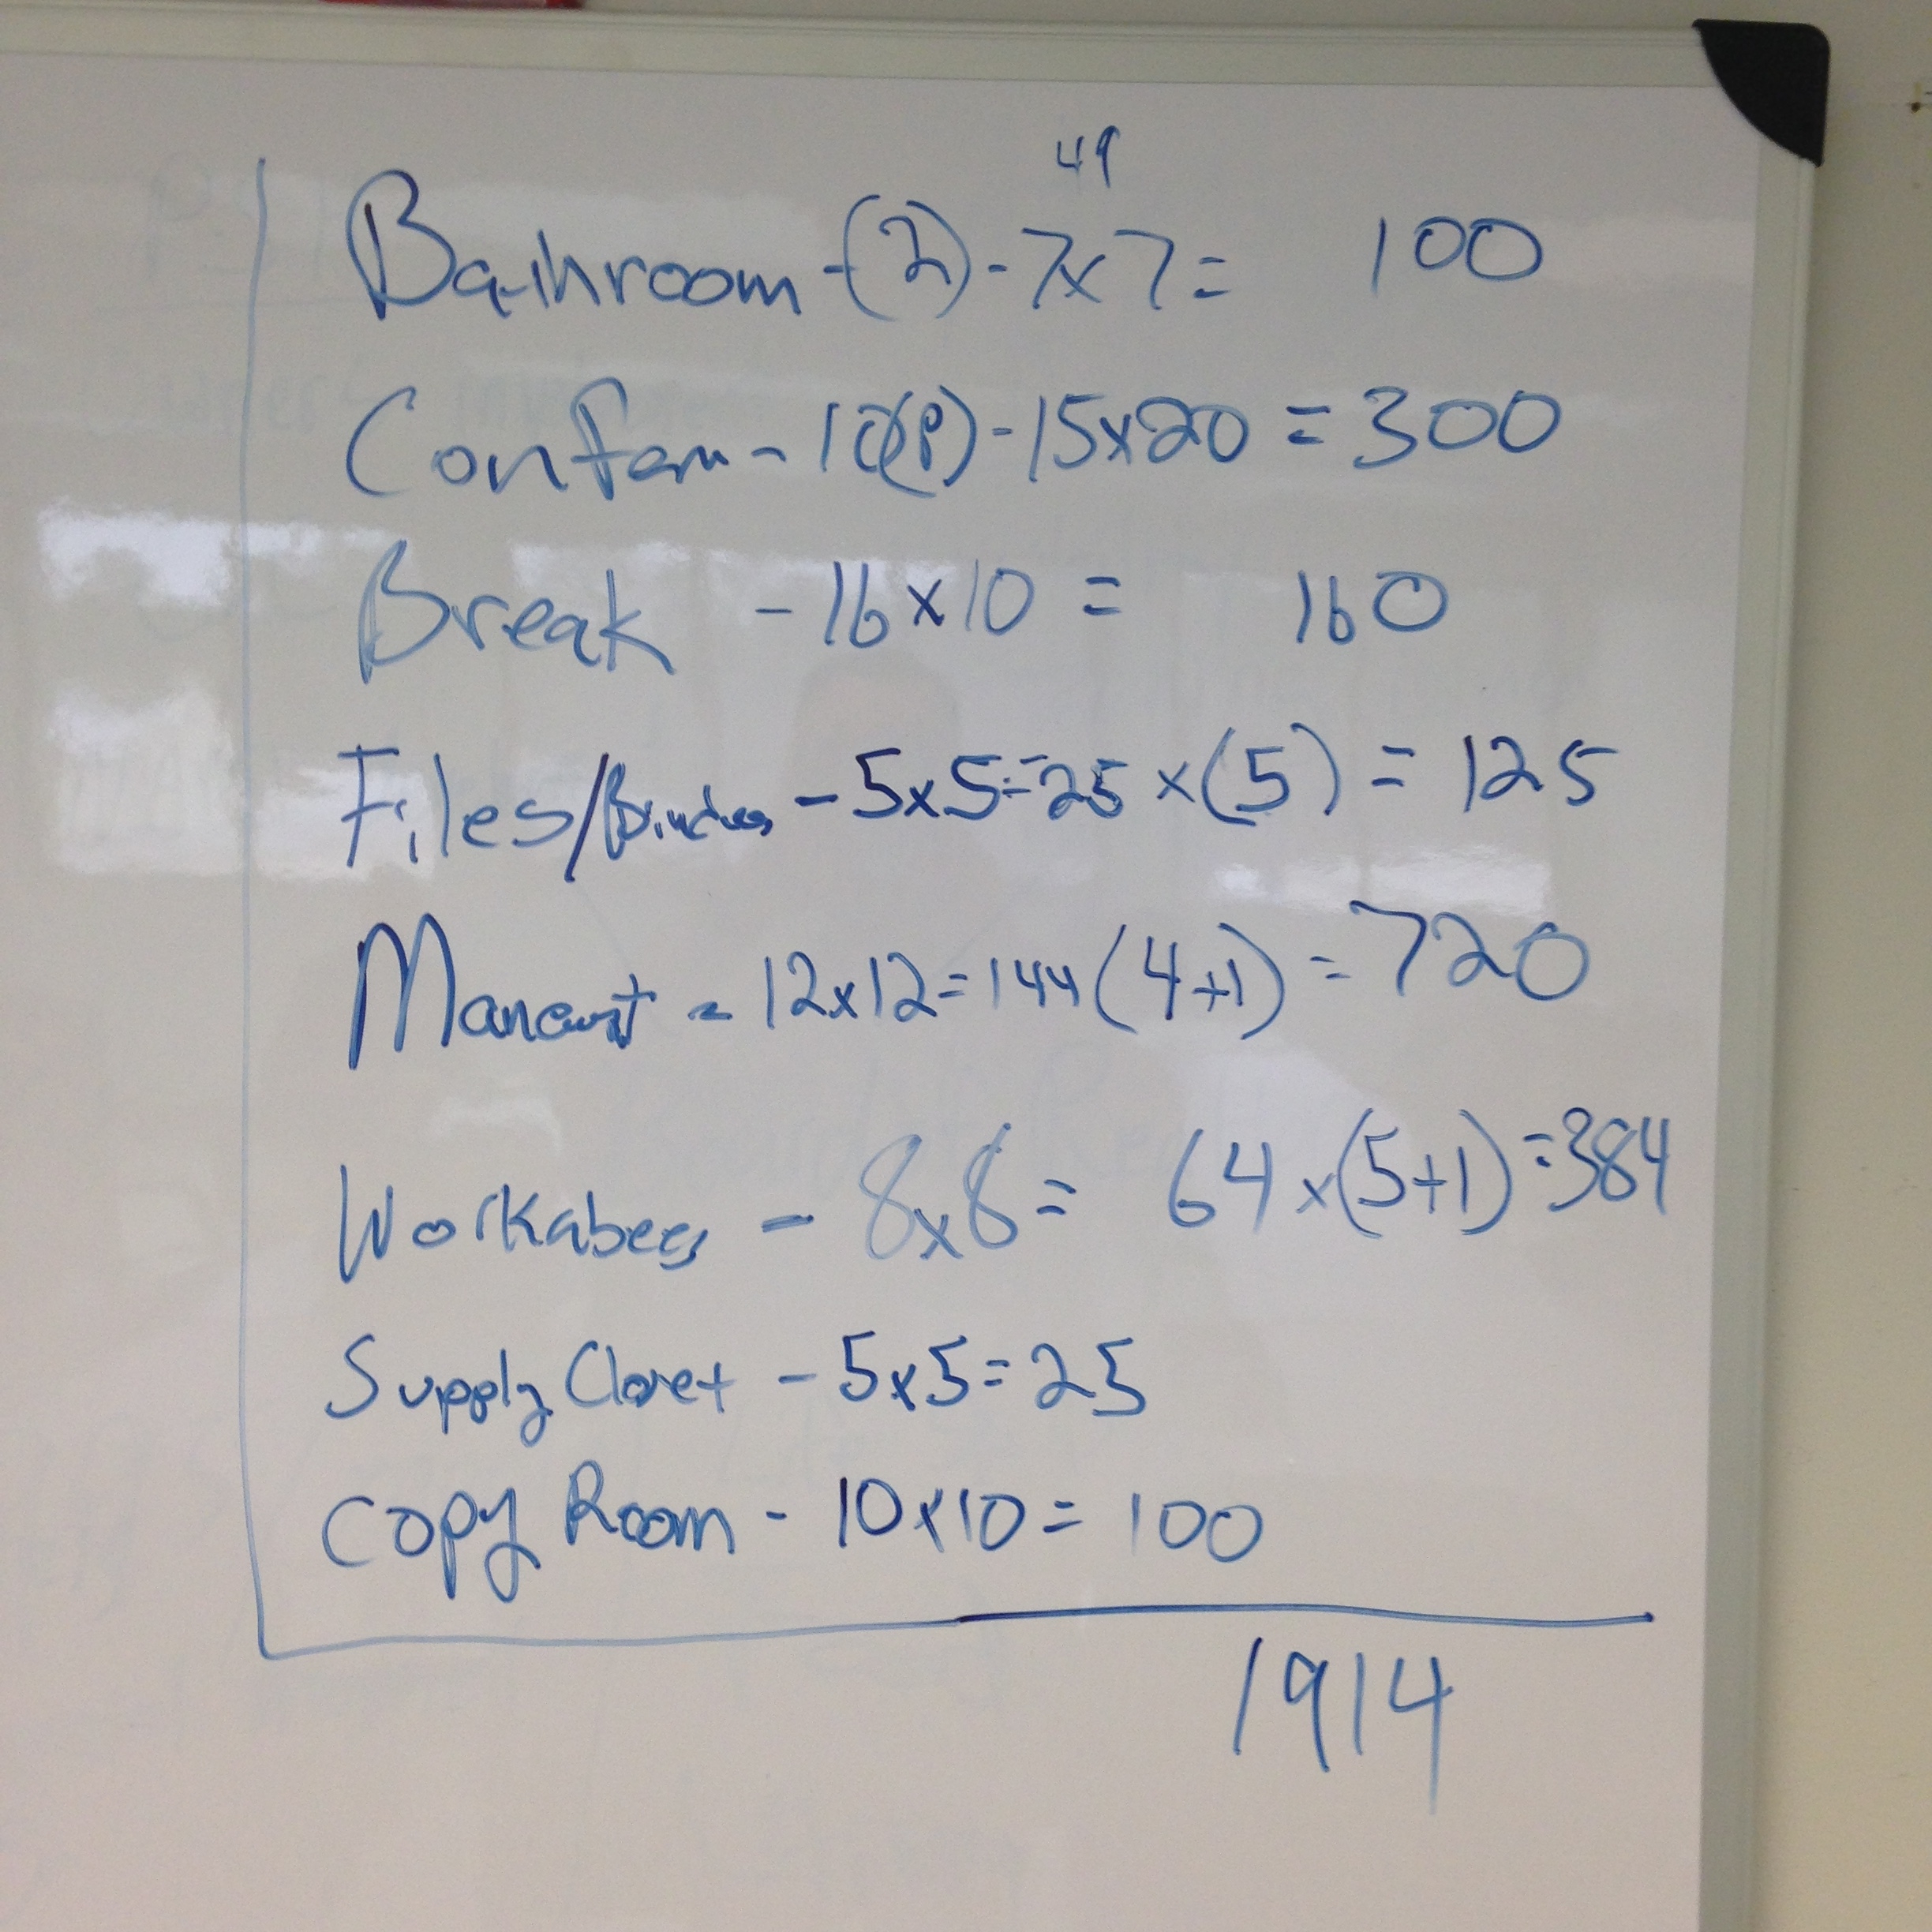 49
Bathroom - (2) - 7x7 = 100
- 15x20 = 300
Break - 16x10 = 160
Files/ - 5x5=25 x (5) = 125
- 12x12=144 (4+1) = 720
Workabees - 8x8 = 64 x (5+1) =384
Supply Closet - 5x5=25
Copy Room - 10x10= 100
1914